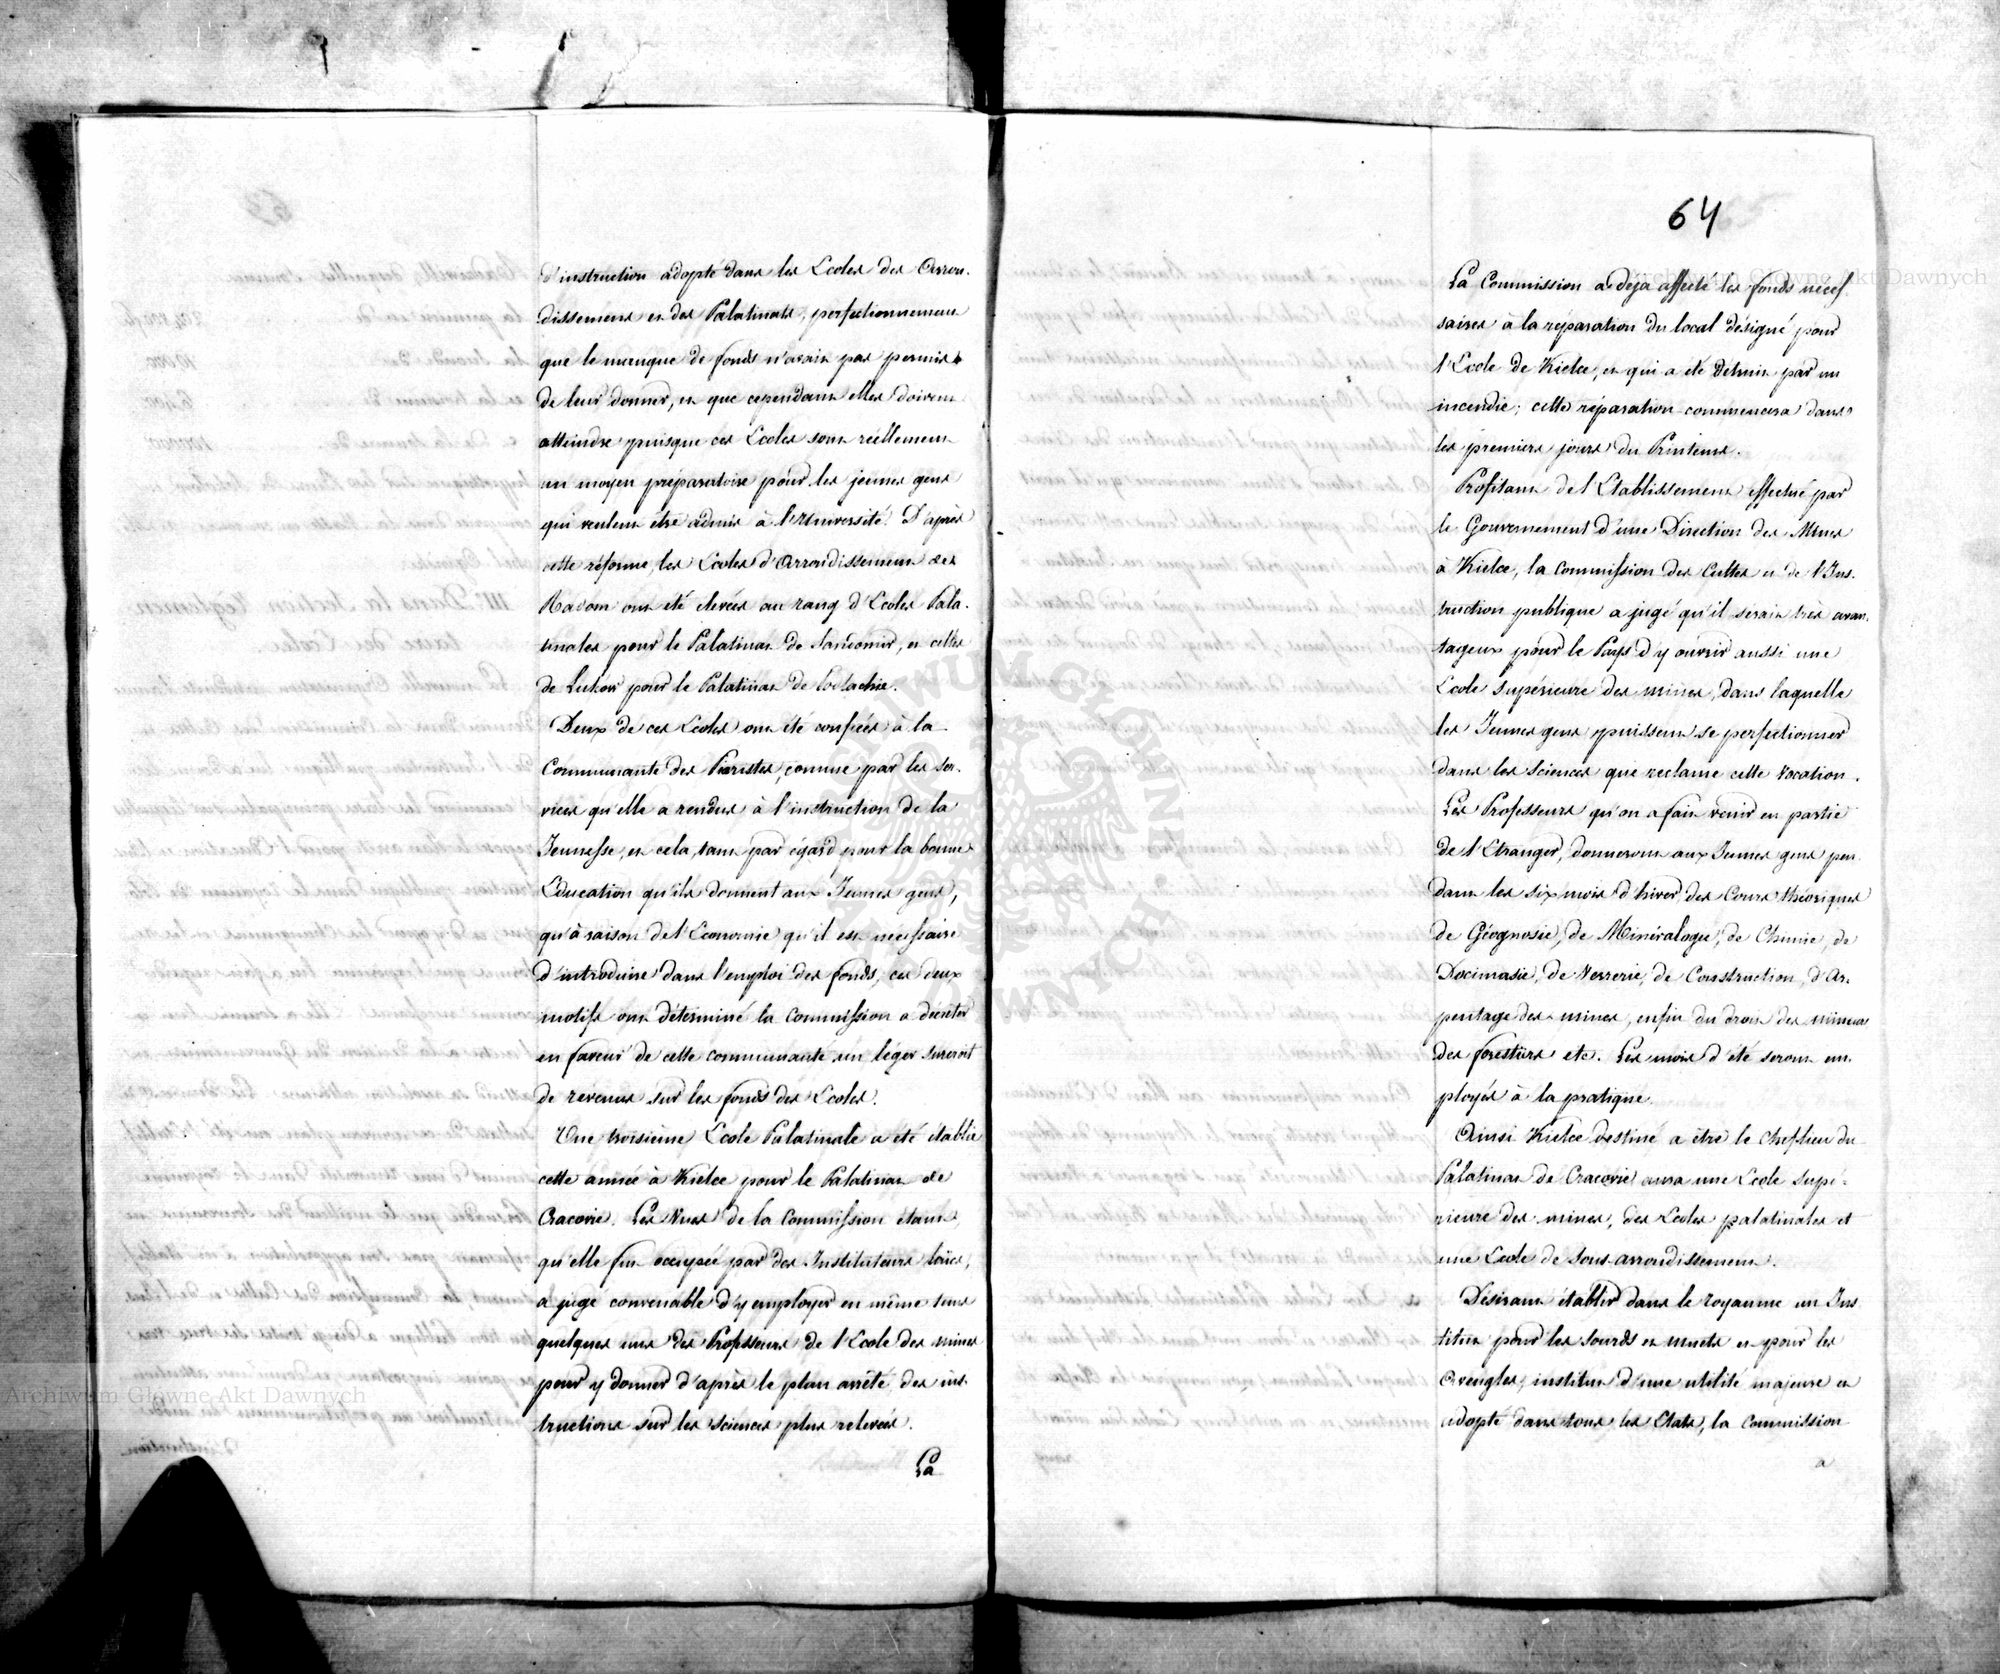 d'instruction adopté dans les Ecoles des Arron-
dissemens et des Palatinats, perfectionnement
que le manque de fonds n'avait pas permis
de leur donner, et que cependant elles doivent
atteindre puisque ces Ecoles sont réellement
un moyen préparatoire pour les jeunes gens
qui veulent être admis à l'Université. D'après
cette réforme, les Ecoles d'Arrondissement de
Radom ont été élevées au rang d'Ecoles Pala-
tinales pour le Palatinat de Sandomir, et celles
de Lukow pour le Palatinat de Podlachie.
Deux de ces Ecoles ont été confiées à la
Communauté des Piaristes, connue par les ser-
vices qu'elle a rendus à l'instruction de la
Jeunesse, et cela, tant par égard pour la bonne
Education qu'ils donnent aux Jeunes gens,
qu'à raison de l'Economie qu'il est nécessaire
d'introduire dans l'emploi des fonds; ces deux
motifs ont déterminé la Commission a décréter
en faveur de cette communauté un léger surcroit
de revenus sur les fonds des Ecoles.
Une troisième Ecole Palatinale a été établie
cette année à Kielce pour le Palatinat de
Cracovie. Les Vues de la Commission étant
qu'elle fut occupée par des Instituteurs laïcs,
a jugé convenable d'y employer en même tems
quelques uns des Professeurs de l'Ecole des mines
pour y donner d'après le plan arrêté, des ins-
tructions sur les sciences plus relevées.
La
64
La Commission a deja affecté les fonds néces-
saires à la réparation du local désigné pour
l'Ecole de Kielce, et qui a été détruit par un
incendie; cette réparation commencera dans
les premiers jours du Printems.
Profitant de l'Etablissement effectué par
le Gouvernement d'une Direction des Mines
à Kielce, la Commission des Cultes et de l'Ins-
truction publique a jugé qu'il serait très avan-
tageux pour le Pays d'y ouvrir aussi une
Ecole supérieure des mines, dans laquelle
les Jeunes gens puissent se perfectionner
dans les sciences que reclame cette vocation.
Les Professeurs qu'on a fait venir en partie
de l'Etranger, donneront aux Jeunes gens pen-
dant les six mois d'hiver, des Cours théoriques
de Géognosie, de Minéralogie, de Chimie, de
Docimasie, de Verrerie, de Construction, d'Ar-
pentage des mines, enfin du droit des mineurs
des forestiers etc. Les mois d'été seront em-
ployés à la pratique.
Ainsi Kielce destiné a être le Cheflieu du
Palatinat de Cracovie aura une Ecole supé-
rieure des mines, des Ecoles palatinales et
une Ecole de Sous-arrondissement.
Désirant établir dans le royaume un Ins
titut pour les sourds et muets et pour les
Aveugles, institut d'une utilité majeure et
adopté dans tous les Etats, la Commission
a
Archiwum Główne Akt Dawnych
Archiwum Główne Akt Dawnych
ARCHIWUM GŁÓWNE AKT DAWNYCH